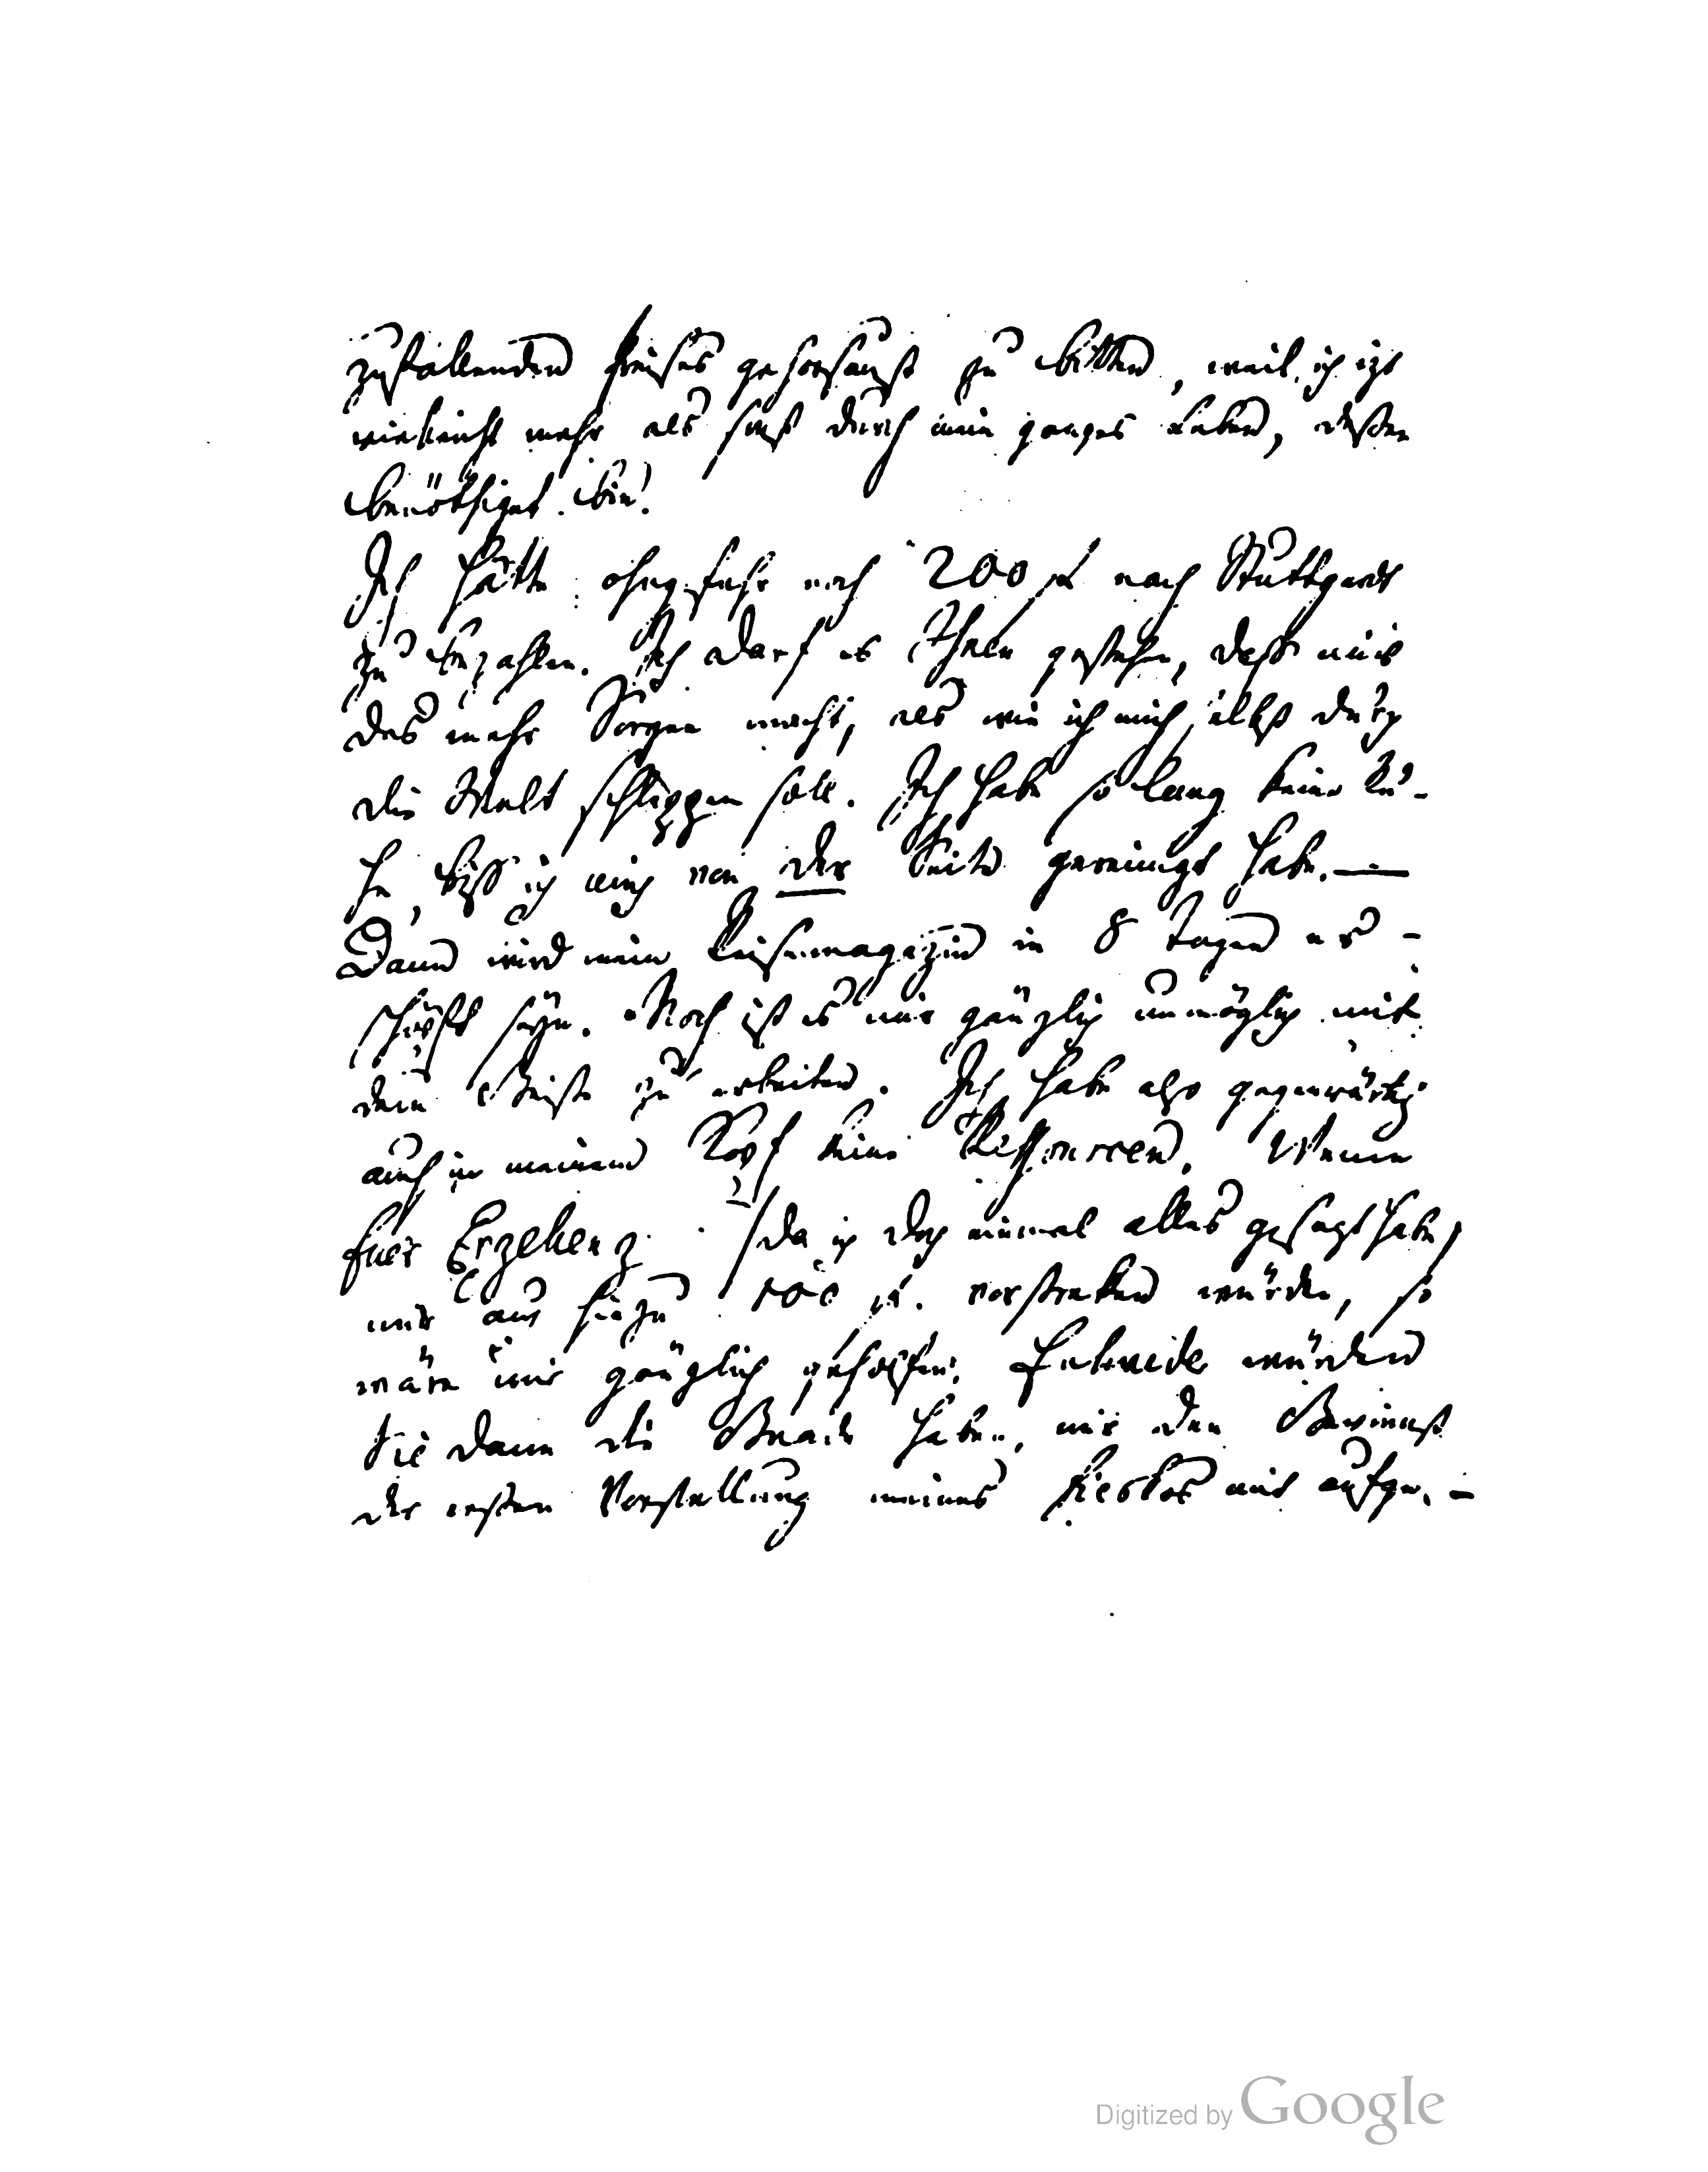 zufallenden Preises gehorsamst zu bitten, weil ich izt
vielleicht mehr als sonst durch mein ganzes Leben, dessen
benöthiget bin.
Ich hätte ohngefehr noch 200 fl. nach Stuttgardt
zu bezahlen. Ich darf es Ihnen gestehen, dass mir
das mehr Sorgen macht, als wie ich mich selbst durch
die Welt schleppen soll. Ich habe so lang keine Ru-
he, biss ich mich von der Seite gereinigt habe. —
Dann wird mein Reisemagazin in 8 Tagen er-
schöpft seyn. Noch ist es mir gänzlich unmöglich mit
dem Geiste zu arbeiten. Ich habe also gegenwärtig
auch in meinem Kopf keine Ressourcen. Wenn
Euer Exzellenz /da ich doch einmal alles gesagt habe/
mir auch hiezu 100 fl. vorstreken würden, so
wäre mir gänzlich geholfen. Entweder würden
Sie dann die Gnade haben, mir den Gewinnst
der ersten Vorstellung meines Fieskos mit aufge-
Digitized by Google